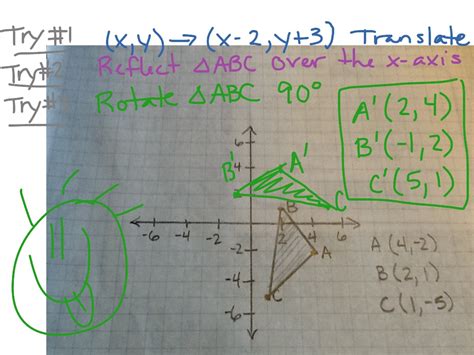 Try #1 (x,y) → (x-2, y+3) Translate
Try #2 Reflect △ABC over the x-axis
Try #3 Rotate △ABC 90°
A'(2,4)
B'(-1,2)
C'(5,1)
6
4
B' A'
C
B
-6 -4 -2 2 4 6
-2
A
-4
C
-6
A(4,-2)
B(2,1)
C(1,-5)